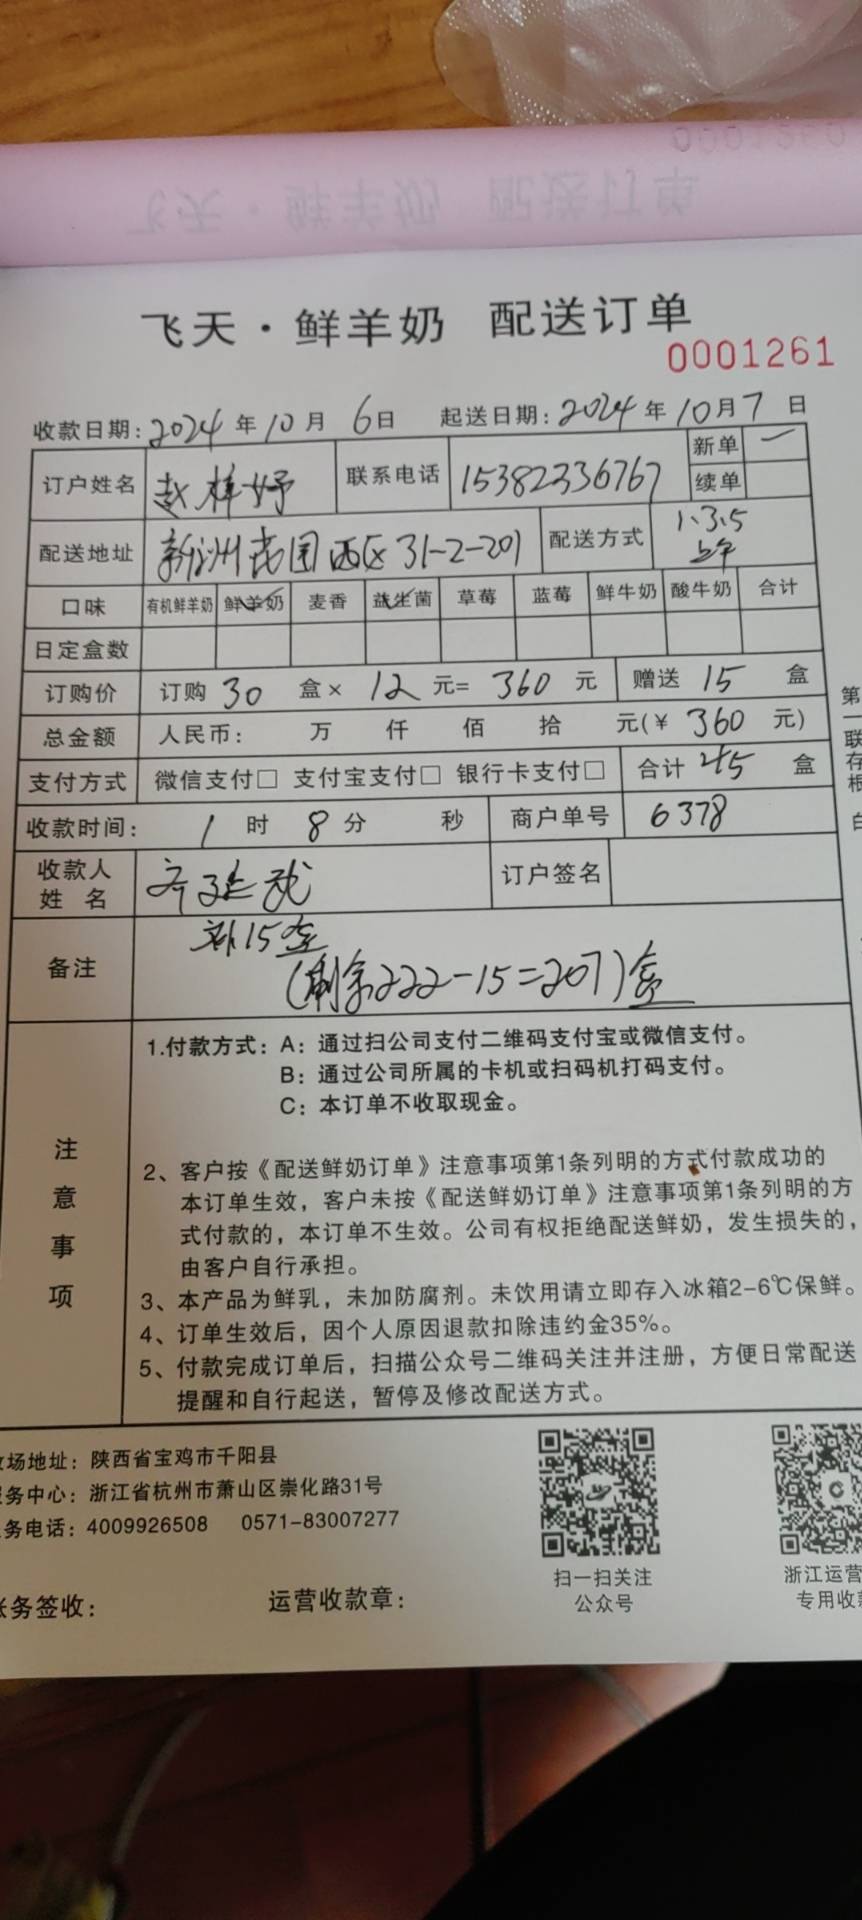 0001260
飞天·鲜羊奶 配送订单
飞天·鲜羊奶 配送订单
0001261
收款日期:2024年10月6日 起送日期:2024年10月7日
订户姓名 赵梓妤 联系电话 15382336767 新单 一
续单
配送地址 新洲花园西区31-2-201 配送方式 1、3、5 上午
口味 有机鲜羊奶 鲜羊奶 麦香 益生菌 草莓 蓝莓 鲜牛奶 酸牛奶 合计
日定盒数
订购价 订购30盒×12元=360元 赠送15盒
总金额 人民币: 万 仟 佰 拾 元(¥360元)
支付方式 微信支付□ 支付宝支付□ 银行卡支付□ 合计45盒
收款时间: 1时8分 秒 商户单号 6378
收款人姓名 订户签名
备注 补15盒
(剩余222-15=207)盒
注意事项
1.付款方式:A:通过扫公司支付二维码支付宝或微信支付。
B:通过公司所属的卡机或扫码机打码支付。
C:本订单不收取现金。
2、客户按《配送鲜奶订单》注意事项第1条列明的方式付款成功的
本订单生效,客户未按《配送鲜奶订单》注意事项第1条列明的方
式付款的,本订单不生效。公司有权拒绝配送鲜奶,发生损失的,
由客户自行承担。
3、本产品为鲜乳,未加防腐剂。未饮用请立即存入冰箱2-6℃保鲜。
4、订单生效后,因个人原因退款扣除违约金35%。
5、付款完成订单后,扫描公众号二维码关注并注册,方便日常配送
提醒和自行起送,暂停及修改配送方式。
第一联存根 白
场地址:陕西省宝鸡市千阳县
务中心:浙江省杭州市萧山区崇化路31号
务电话:4009926508 0571-83007277
扫一扫关注
公众号
浙江运营
专用收
务签收: 运营收款章: